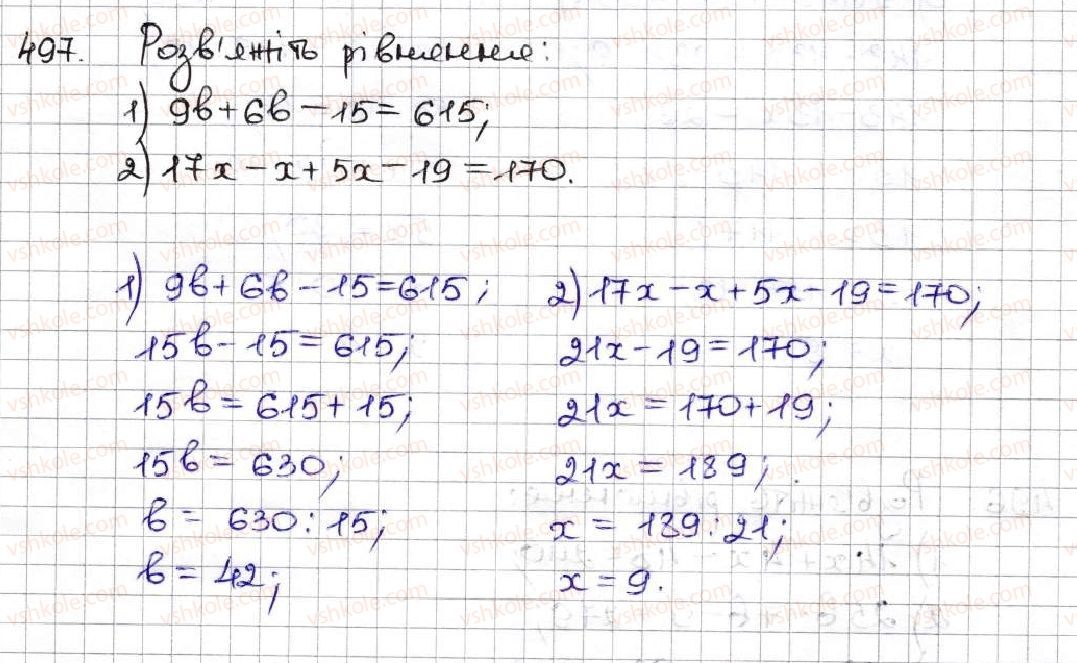 497. Розв'яжіть рівняння:
1) 9b+6b-15=615;
2) 17x-x+5x-19=170.
1) 9b+6b-15=615;
15b-15=615;
15b=615+15;
15b=630;
b=630:15;
b=42;
2) 17x-x+5x-19=170;
21x-19=170;
21x=170+19;
21x=189;
x=189:21;
x=9.